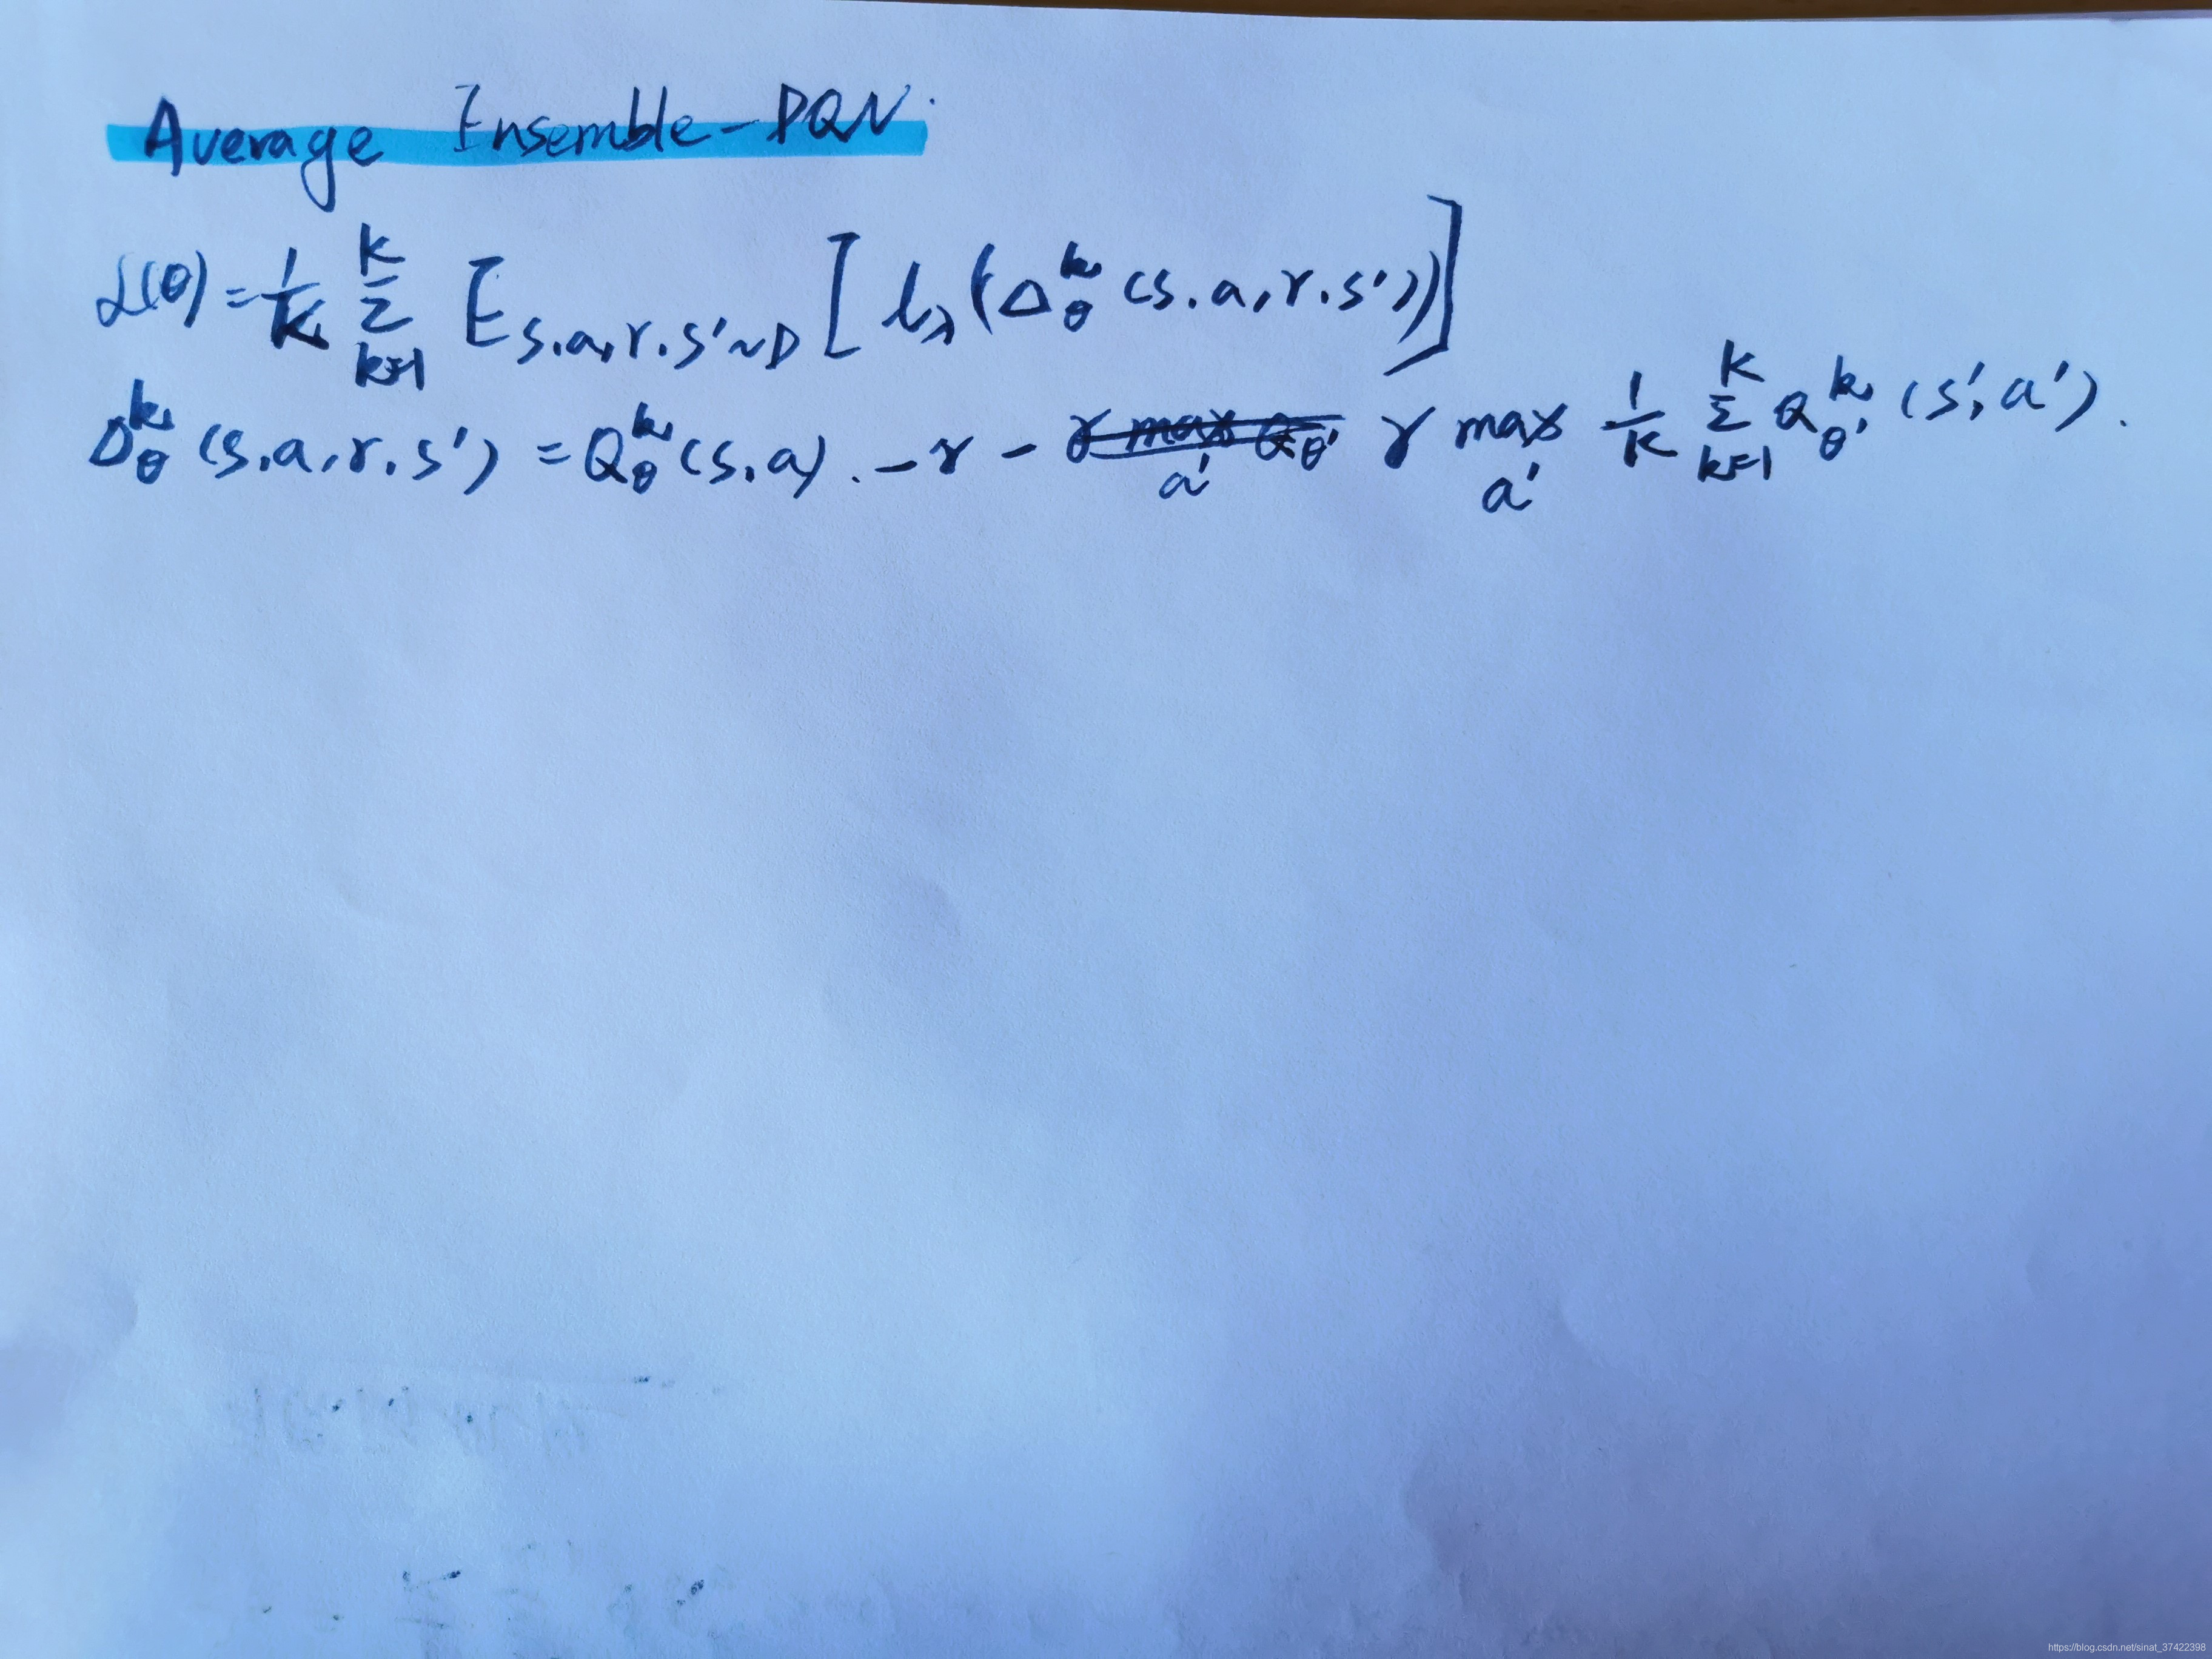 Average Ensemble-DQN.
L(θ) = 1/K Σ_{k=1}^{K} E_{s.a,r.s'~D} [ l_λ (Δ_θ^k (s.a,r.s')) ]
Δ_θ^k (s.a,r.s') = Q_θ^k (s,a). -r - γ max_{a'} 1/K Σ_{k=1}^{K} Q_{θ'}^k (s',a').
https://blog.csdn.net/sinat_37422398